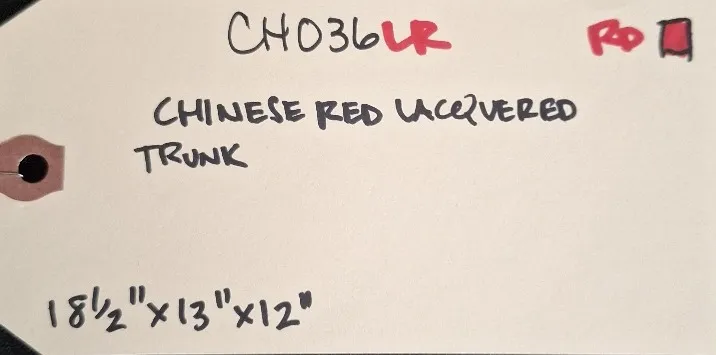 CH036LR RD
CHINESE RED LACQUERED
TRUNK
18 1/2" x 13" x 12"